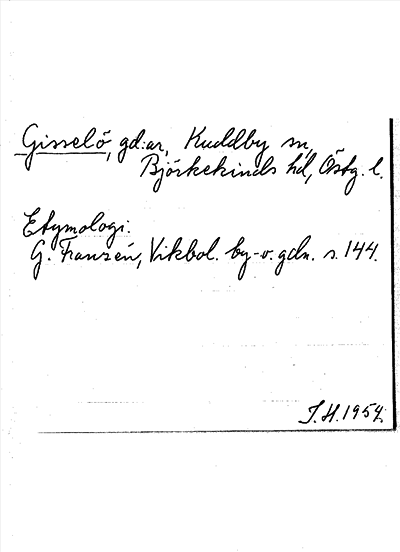 Gisselö, gd:ar, Kuddby sn,
Björkekinds hd, Östg. l.
Etymologi:
G. Franzén, Vikbol. by- o. gdn. s. 144.
J. H. 1954.